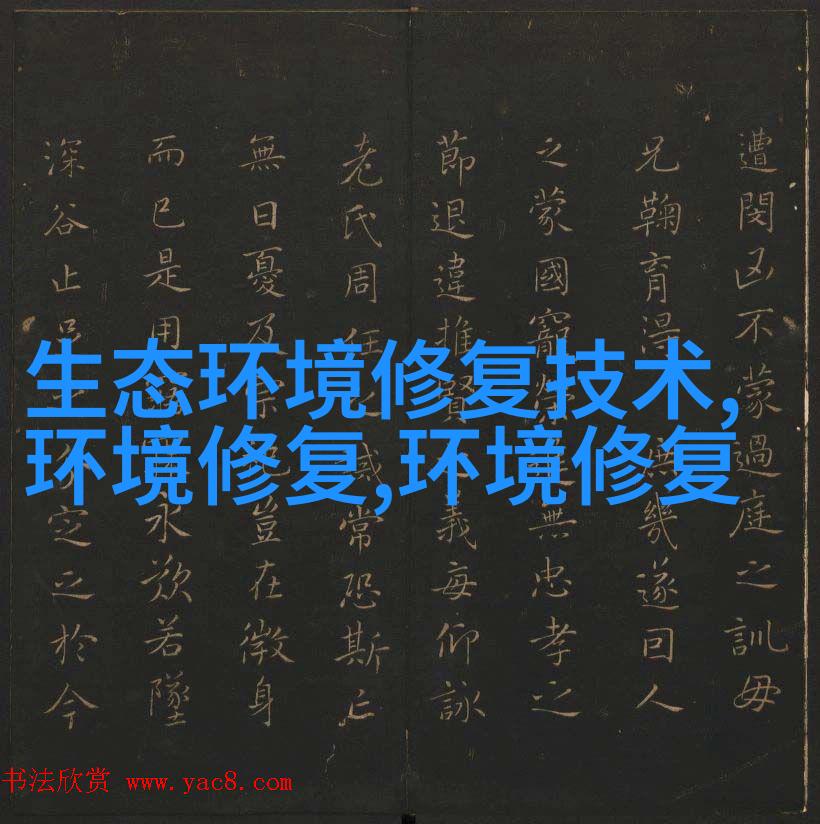 遭閔凶不蒙過庭之訓毋
兄鞠育幾遂回人
之蒙國寵無忠孝之
節退違推賢義每仰詠
老氏周任誡常恐斯亡
無日憂及豈在微身
而已是用水欲若墜
深谷止分定之於今
生态环境修复技术,
环境修复,环境修复
书法欣赏 www.yac8.com